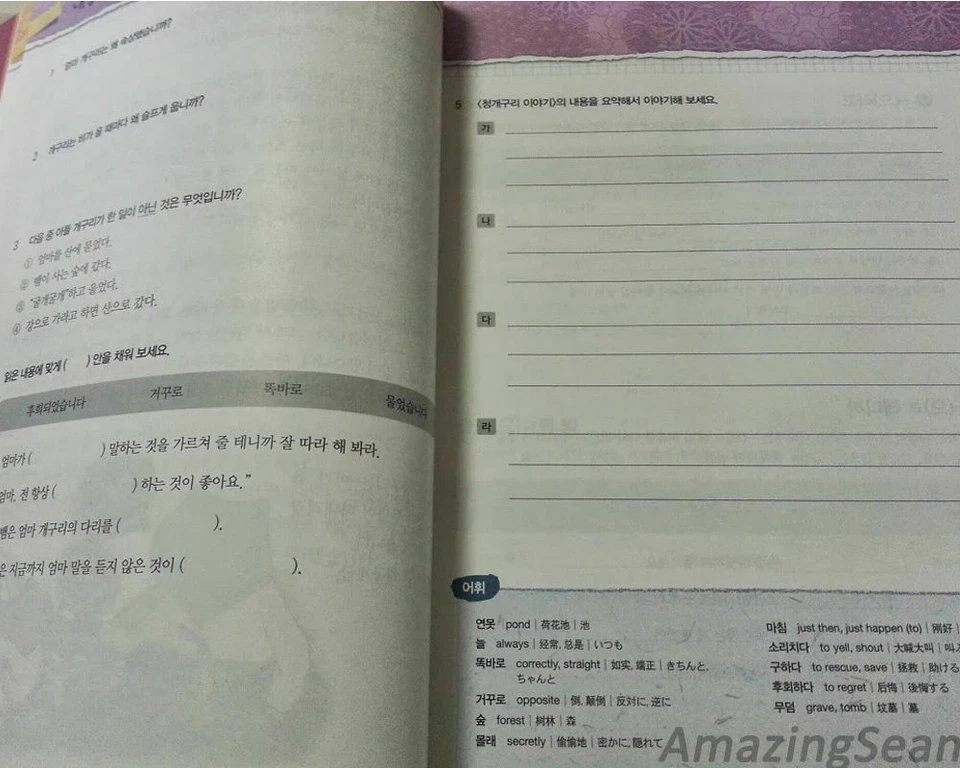 1 엄마 개구리는 왜 속상했습니까?
2 개구리는 비가 올 때마다 왜 슬프게 웁니까?
3 다음 중 아들 개구리가 한 일이 아닌 것은 무엇입니까?
① 엄마를 산에 묻었다.
② 뱀이 사는 숲에 갔다.
③ "굴개굴개"하고 울었다.
④ 강으로 가라고 하면 산으로 갔다.
읽은 내용에 맞게 ( ) 안을 채워 보세요.
후회되었습니다 거꾸로 똑바로 물었습니다
엄마가 ( ) 말하는 것을 가르쳐 줄 테니까 잘 따라 해 봐라.
엄마, 전 항상 ( ) 하는 것이 좋아요."
뱀은 엄마 개구리의 다리를 ( ).
은 지금까지 엄마 말을 듣지 않은 것이 ( ).
5 《청개구리 이야기》의 내용을 요약해서 이야기해 보세요.
가
나
다
라
어휘
연못 pond | 荷花池 | 池
늘 always | 经常, 总是 | いつも
똑바로 correctly, straight | 如实, 端正 | きちんと,
ちゃんと
거꾸로 opposite | 倒, 颠倒 | 反対に, 逆に
숲 forest | 树林 | 森
몰래 secretly | 偷偷地 | 密かに, 隠れて
마침 just then, just happen (to) | 刚好 |
소리치다 to yell, shout | 大喊大叫 | 叫
구하다 to rescue, save | 拯救 | 助ける
후회하다 to regret | 后悔 | 後悔する
무덤 grave, tomb | 坟墓 | 墓
AmazingSean